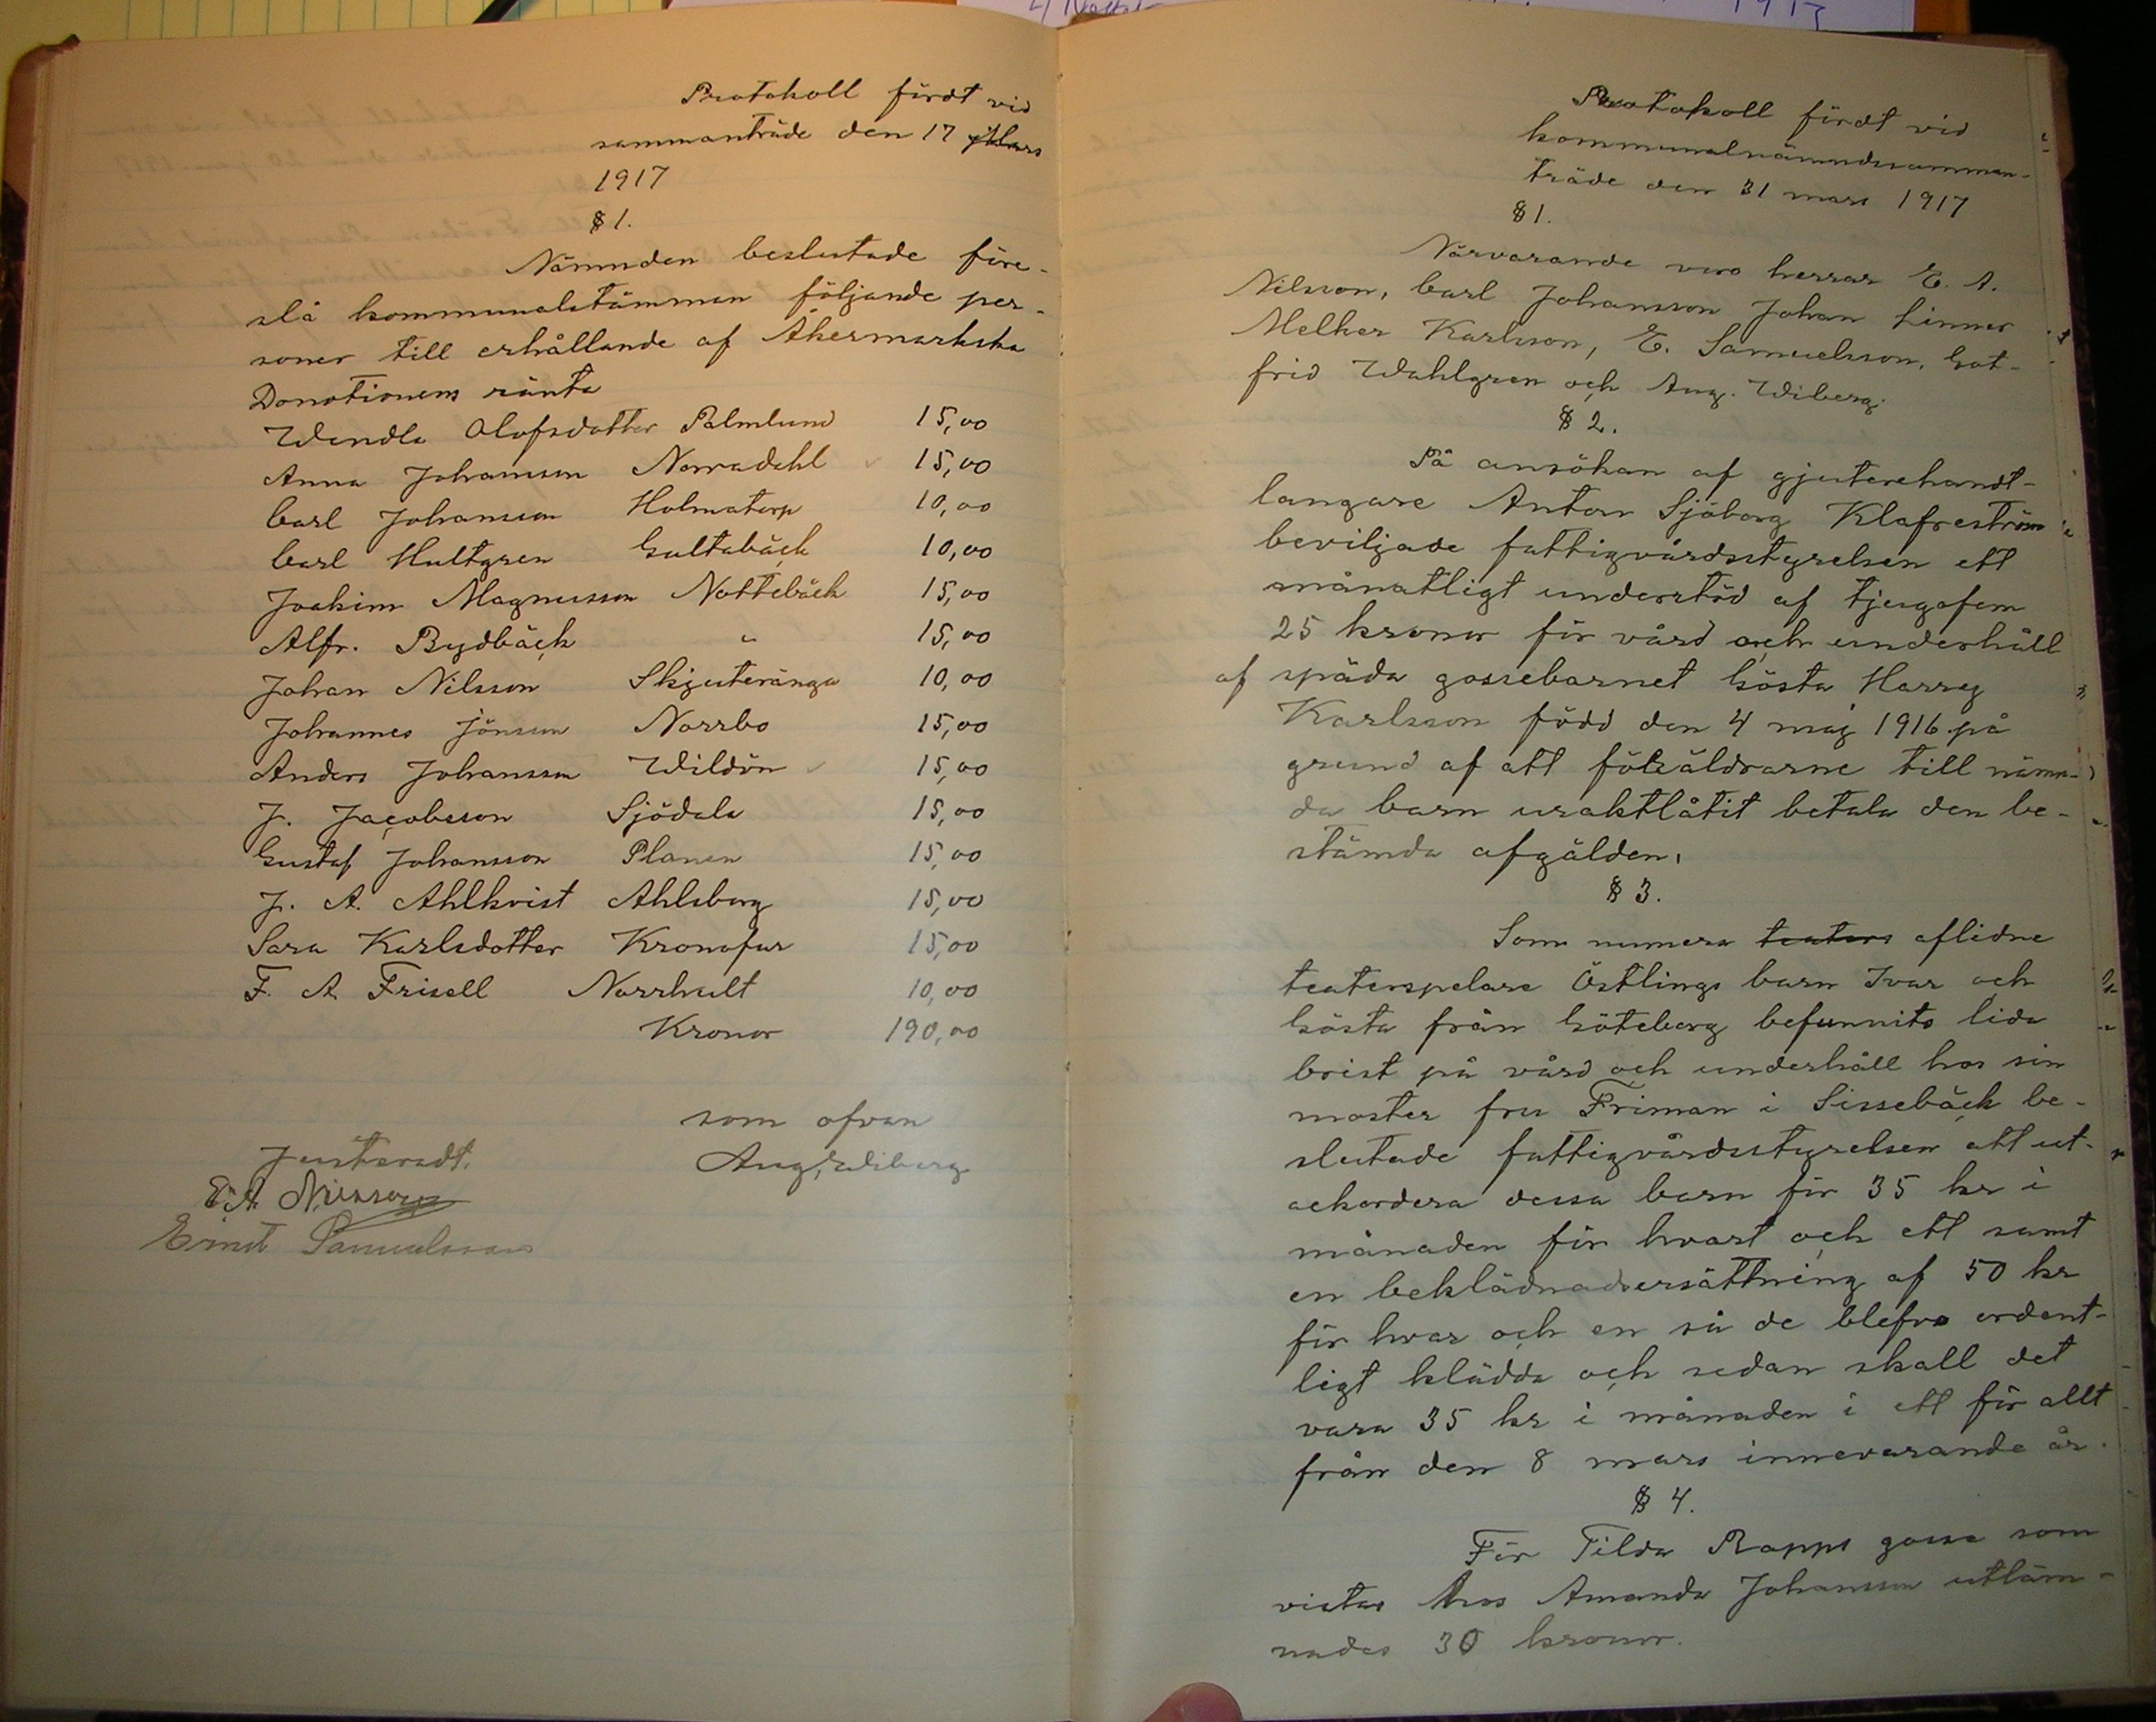 1917
Protokoll fördt vid
sammanträde den 17 Mars
1917
§ 1.
Nämnden beslutade före-
slå kommunalstämman följande per-
soner till erhållande af Åkermarkska
Donationens ränta
Wendla Olofsdotter Palmlund 15,00
Anna Johansson Norradahl 15,00
Carl Johansson Holmatorp 10,00
Carl Hultgren Gultabäck 10,00
Joakim Magnusson Nottebäck 15,00
Alfr. Bydbäck " 15,00
Johan Nilsson Skjuteränga 10,00
Johannes Jönsson Norrbo 15,00
Anders Johansson Wildön 15,00
J. Jacobsson Sjödala 15,00
Gustaf Johansson Planen 15,00
J. A. Ahlkvist Ahlsberg 15,00
Sara Karlsdotter Kronofur 15,00
F. A. Frisell Norrhult 10,00
Kronor 190,00
som ofvan
Aug. Wiberg
Justeradt.
E. A. Nilsson
Ernst Samuelsson
Protokoll fördt vid
kommunalnämndssamman-
träde den 31 mars 1917
§ 1.
Närvarande voro herrar E. A.
Nilsson, Carl Johansson Johan Linner
Melker Karlsson, E. Samuelsson, Got-
frid Wahlgren och Aug. Wiberg.
§ 2.
På ansökan af gjuterehandt-
langare Anton Sjöborg Klafreström
beviljade fattigvårdsstyrelsen ett
månatligt understöd af tjugofem
25 kronor för vård och underhåll
af späda gossebarnet Gösta Harry
Karlsson född den 4 maj 1916 på
grund af att föräldrarne till nämn-
da barn uraktlåtit betala den be-
stämda afgälden.
§ 3.
Som numera teaters aflidne
teaterspelare Östlings barn Ivar och
Gösta från Göteborg befunnits lida
brist på vård och underhåll hos sin
moster fru Friman i Sissebäck be-
slutade fattigvårdsstyrelsen att ut-
ackordera dessa barn för 35 kr i
månaden för hvart och ett samt
en beklädnadsersättning af 50 kr
för hvar och en så de blefvo ordent-
ligt klädda och sedan skall det
vara 35 kr i månaden i ett för allt
från den 8 mars innevarande år.
§ 4.
För Tilda Rapps gosse som
vistas hos Amanda Johansson utläm-
nades 30 kronor.